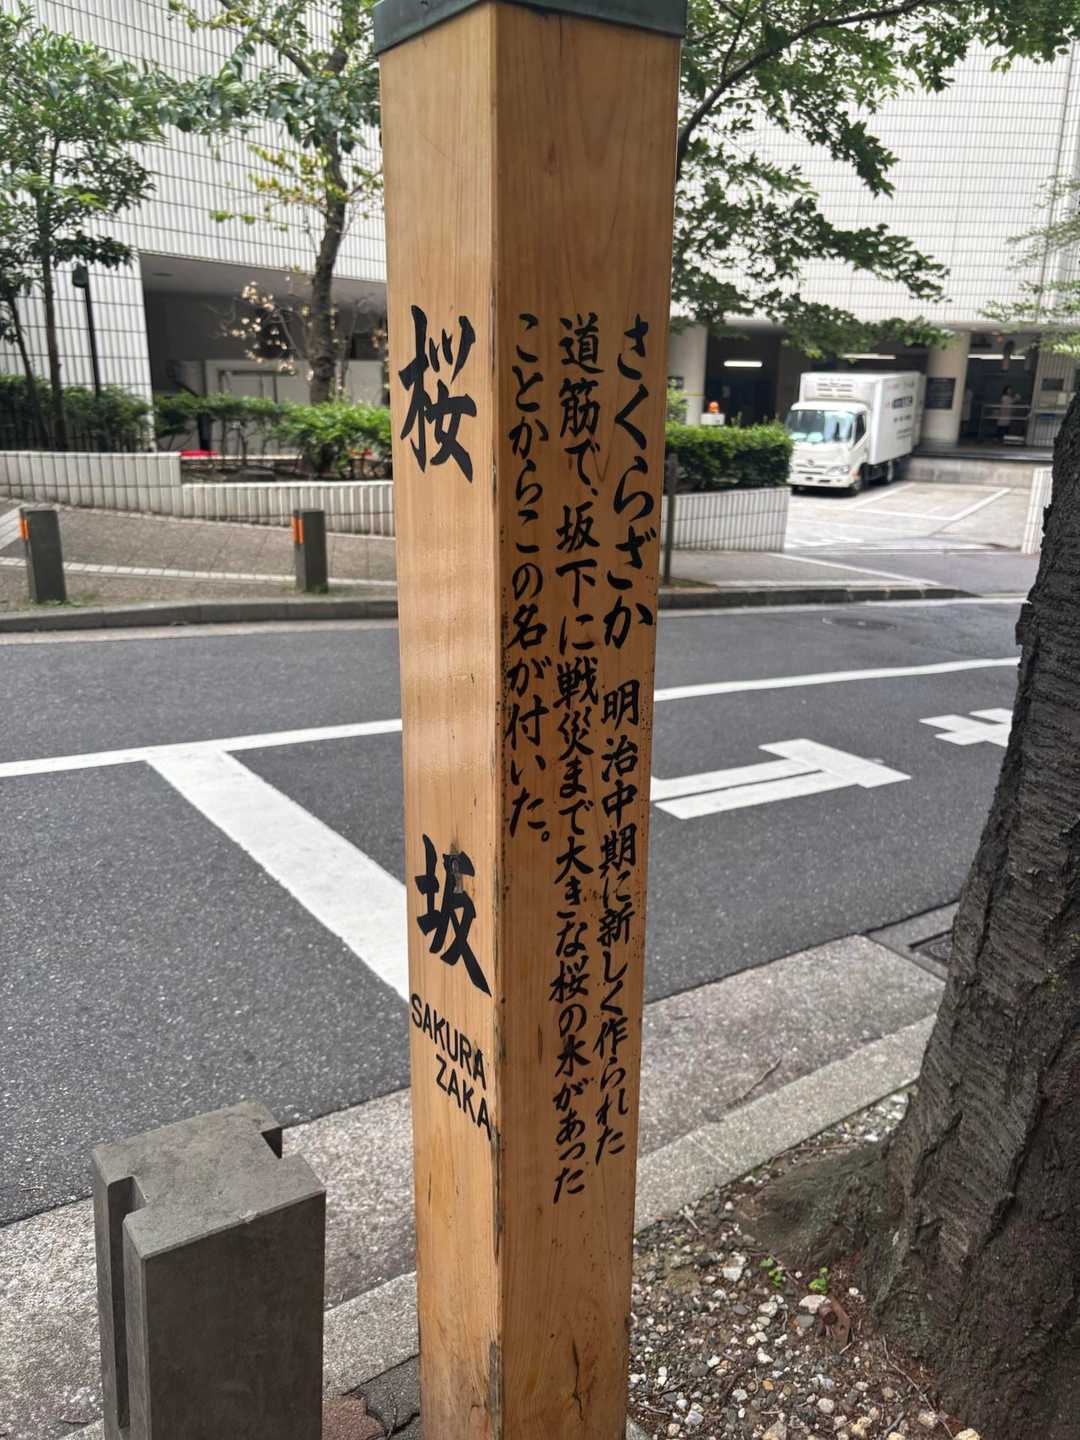 桜坂
SAKURA
ZAKA
さくらざか 明治中期に新しく作られた
道筋で、坂下に戦災まで大きな桜の木があった
ことからこの名が付いた。